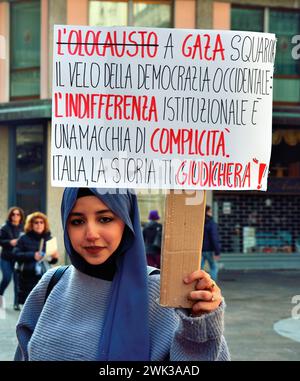 L'OLOCAUSTO A GAZA SQUARCIA
IL VELO DELLA DEMOCRAZIA OCCIDENTALE:
L'INDIFFERENZA ISTITUZIONALE È
UNA MACCHIA DI COMPLICITÀ.
ITALIA, LA STORIA TI GIUDICHERÀ!